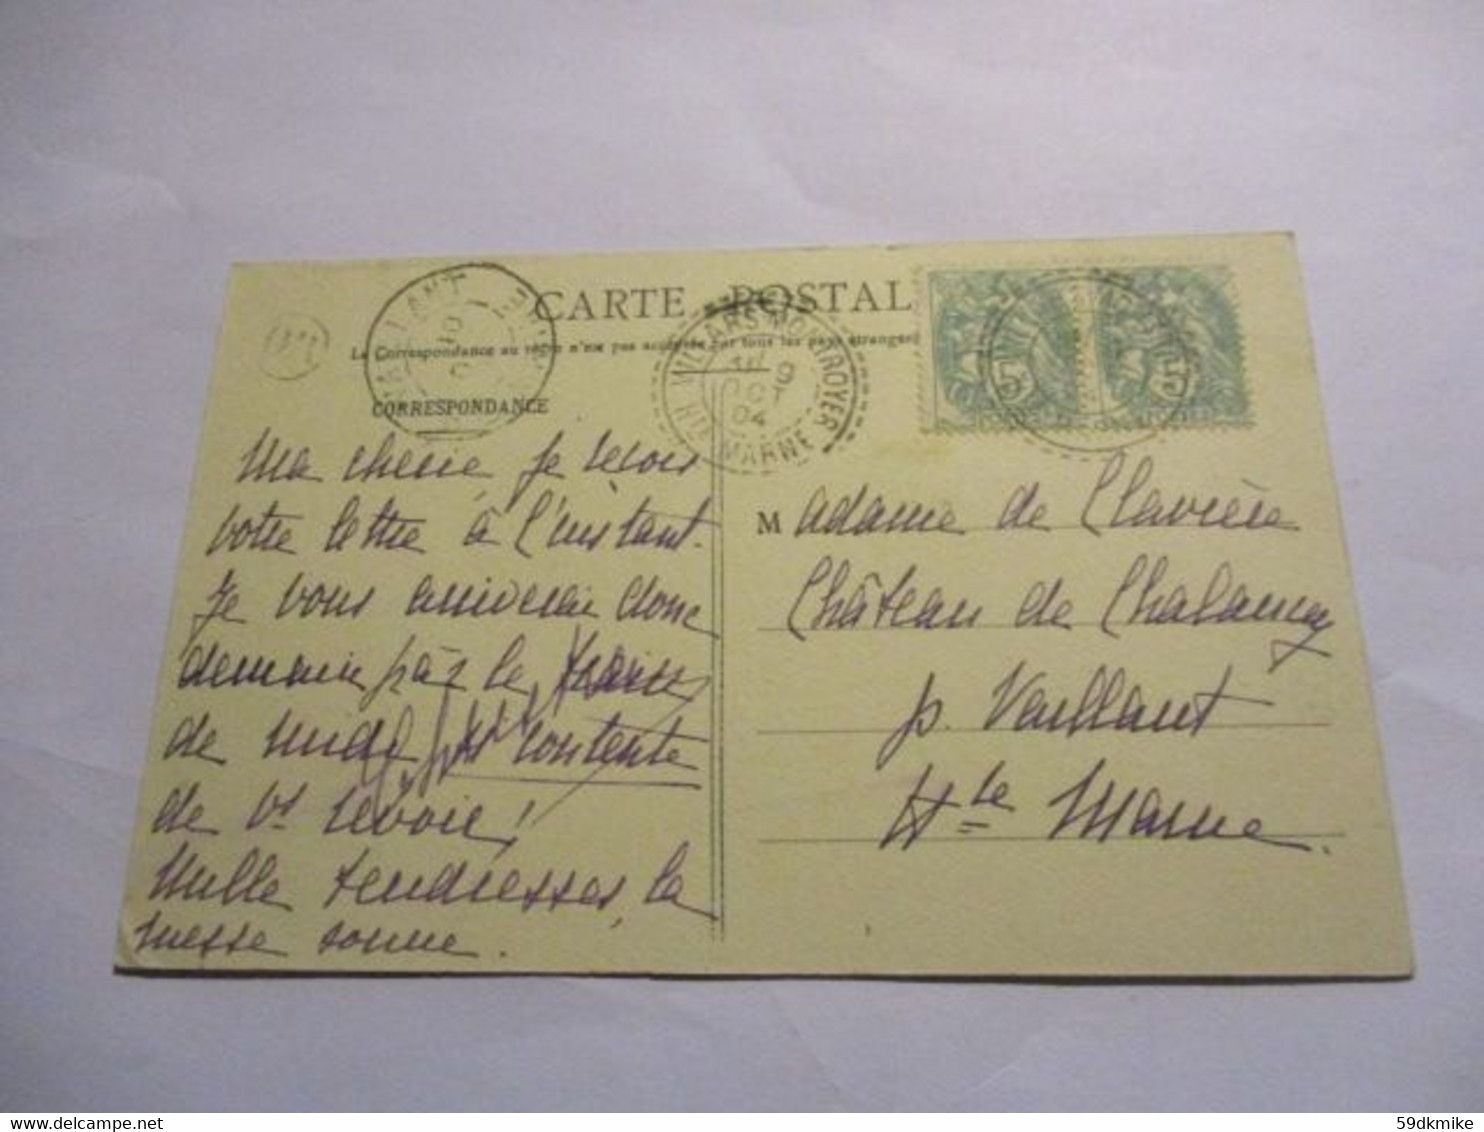 CARTE POSTALE
La Correspondance au recto n'est pas acceptée par tous les pays étrangers
CORRESPONDANCE
VILLARS-MONTROYER
9
OCT
04
HTE MARNE
Ma cherie je reçois
votre lettre à l'instant.
Je vous arriverai donc
demain par le train
de midi contente
de vs revoir!
Mille tendresses, la
messe sonne.
Madame de Clavière
Château de Chalancey
p. Vaillant
Hte Marne.
59dkmike